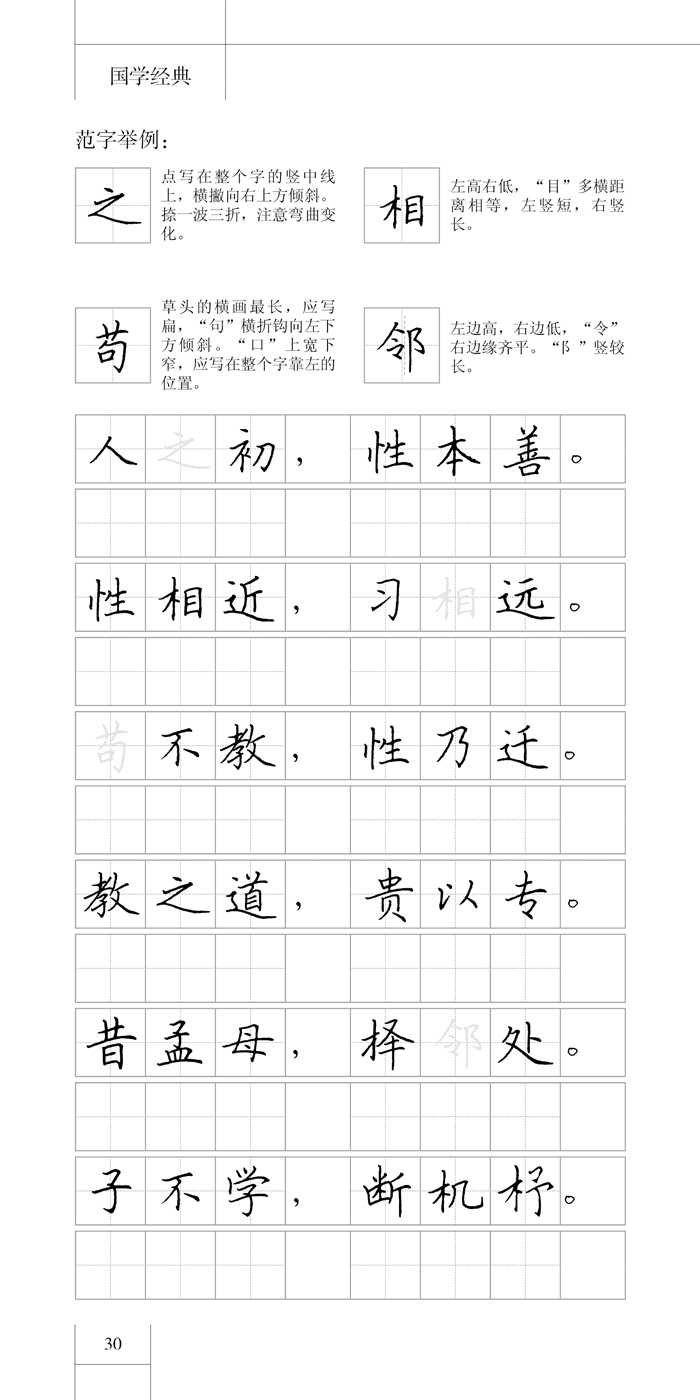 国学经典
范字举例：
之
点写在整个字的竖中线
上，横撇向右上方倾斜。
捺一波三折，注意弯曲变
化。
相
左高右低，“目”多横距
离相等，左竖短，右竖
长。
苟
草头的横画最长，应写
扁，“句”横折钩向左下
方倾斜。“口”上宽下
窄，应写在整个字靠左的
位置。
邻
左边高，右边低，“令”
右边缘齐平。“阝”竖较
长。
人之初，性本善。
性相近，习相远。
苟不教，性乃迁。
教之道，贵以专。
昔孟母，择邻处。
子不学，断机杼。
30